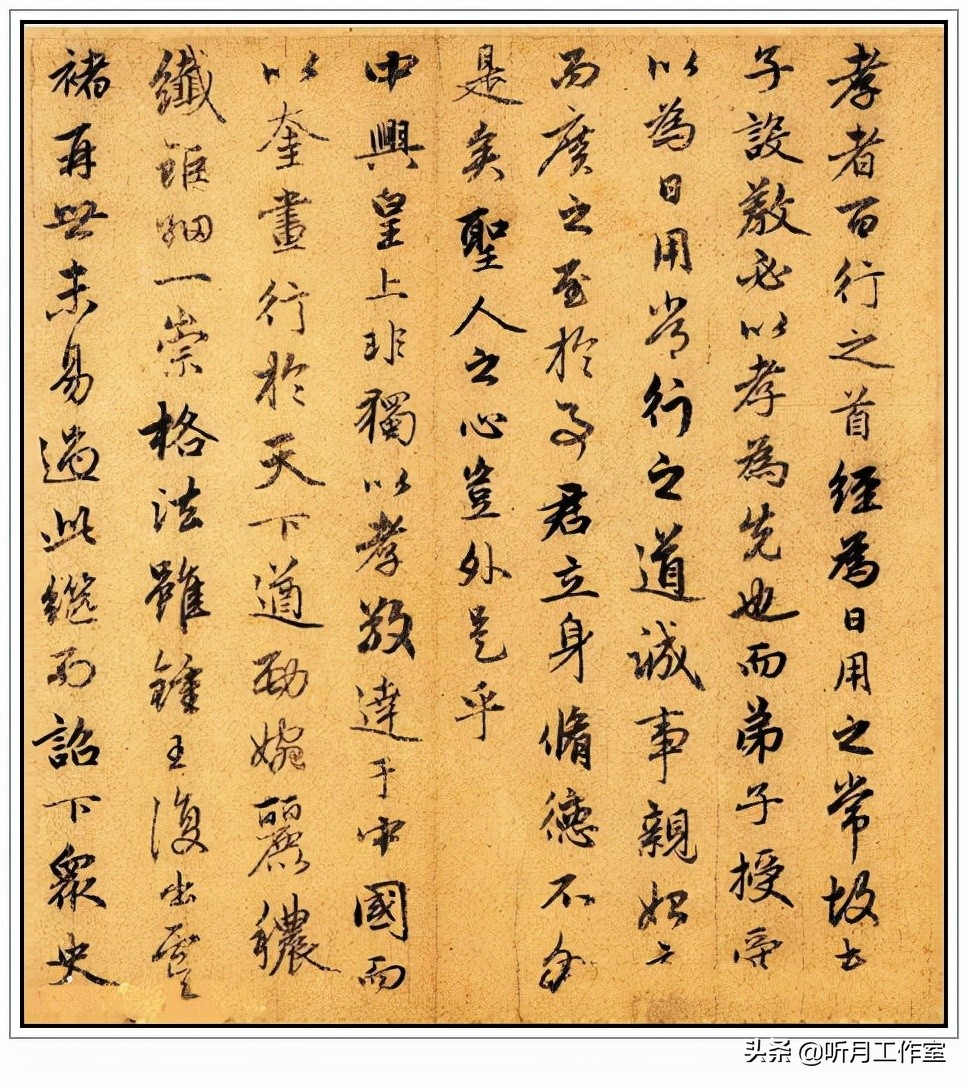 孝者百行之首經為日用之常故夫
子設教必以孝為先也而弟子授受
以為日用常行之道誠事親始
而廣之至於事君立身脩德不外
是矣聖人之心豈外是乎
中興皇上非獨以孝敬達于家國而
以奎畫行於天下遒勁婉麗穠
纖鉅細一崇格法雖鍾王復出虞
褚再世未易過此繼而詔下眾史
头条 @听月工作室